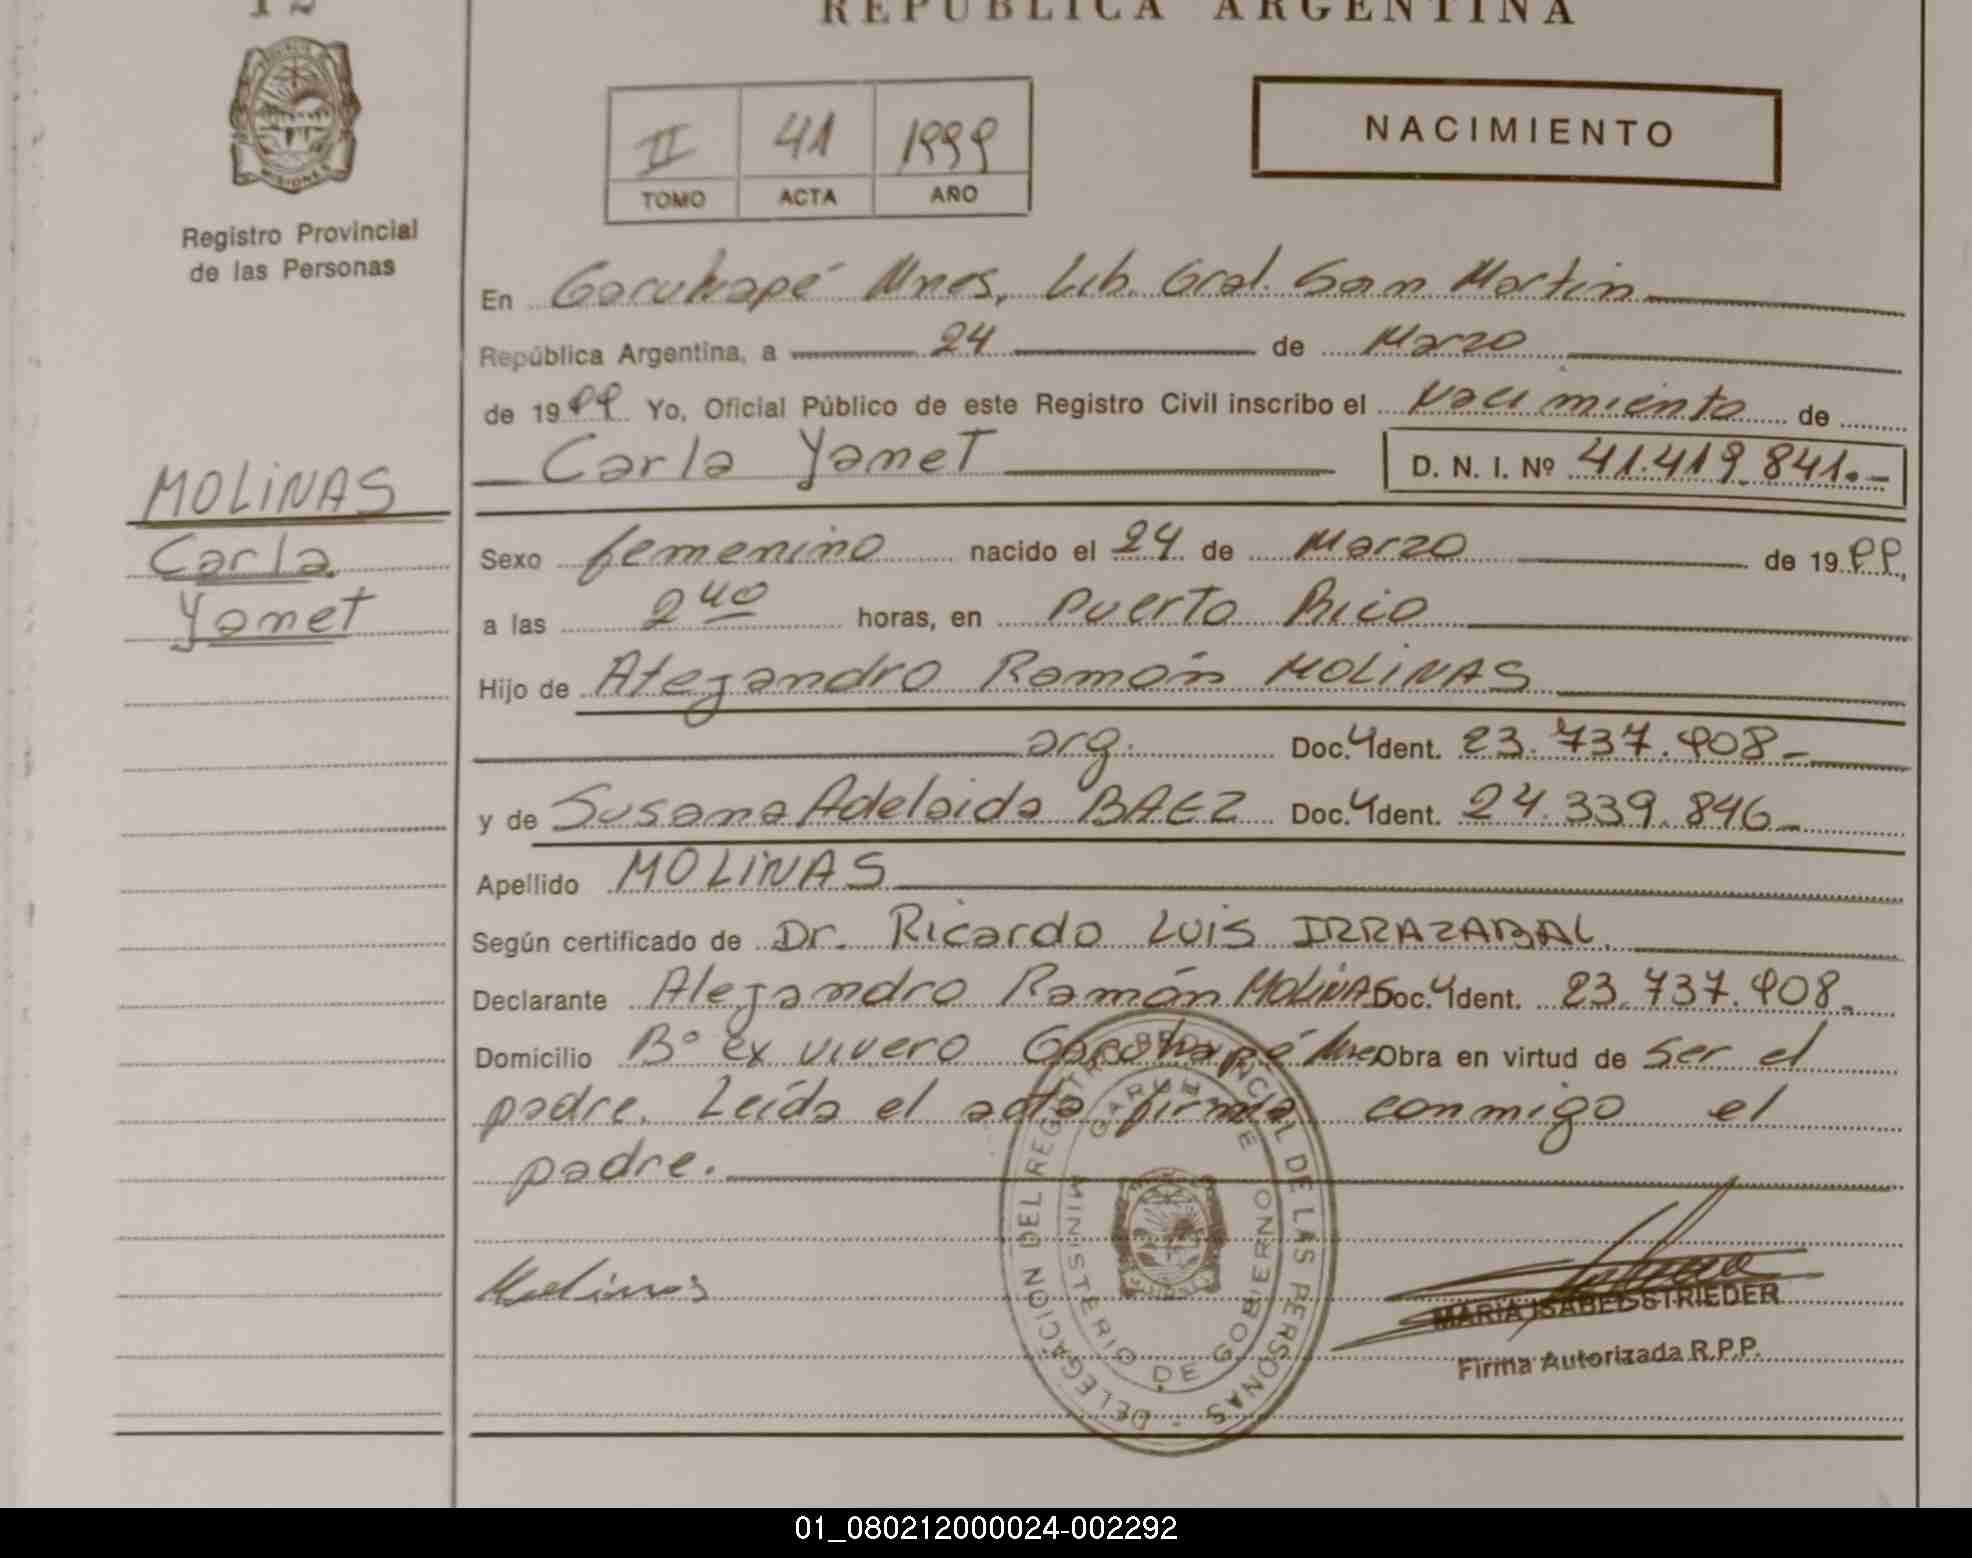 12
REPUBLICA ARGENTINA
MISIONES
Registro Provincial
de las Personas
II 41 1999
TOMO ACTA AÑO
NACIMIENTO
En Garuhapé Mnes, Lib. Gral. San Martín
República Argentina, a 24 de Marzo
de 1999 Yo, Oficial Público de este Registro Civil inscribo el Nacimiento de
Carla Yanet D. N. I. Nº 41.419.841.-
MOLiNAS
Carla
Yanet
Sexo femenino nacido el 24 de Marzo de 1999,
a las 2 40 horas, en Puerto Rico
Hijo de Alejandro Ramón MOLiNAS
arg. Doc. Ident. 23.737.908-
y de Susana Adelaida BAEZ Doc. Ident. 24.339.846-
Apellido MOLiNAS
Según certificado de Dr. Ricardo Luis IRRAZABAL
Declarante Alejandro Ramón MOLiNAS Doc. Ident. 23.737.908.-
Domicilio Bº ex vivero Garuhapé Mnes Obra en virtud de ser el
padre. Leída el acta firma conmigo el
padre.
Molinas
DELEGACION DEL REGISTRO PROVINCIAL DE LAS PERSONAS
MINISTERIO DE GOBIERNO
MARIA ISABEL STRIEDER
Firma Autorizada R.P.P.
01_080212000024-002292